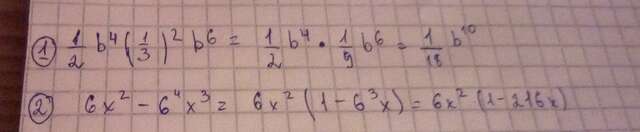 ① 1/2 b⁴(1/3)² b⁶ = 1/2 b⁴ • 1/9 b⁶ = 1/18 b¹⁰
② 6x² - 6⁴x³ = 6x² (1 - 6³x) = 6x² (1 - 216x)